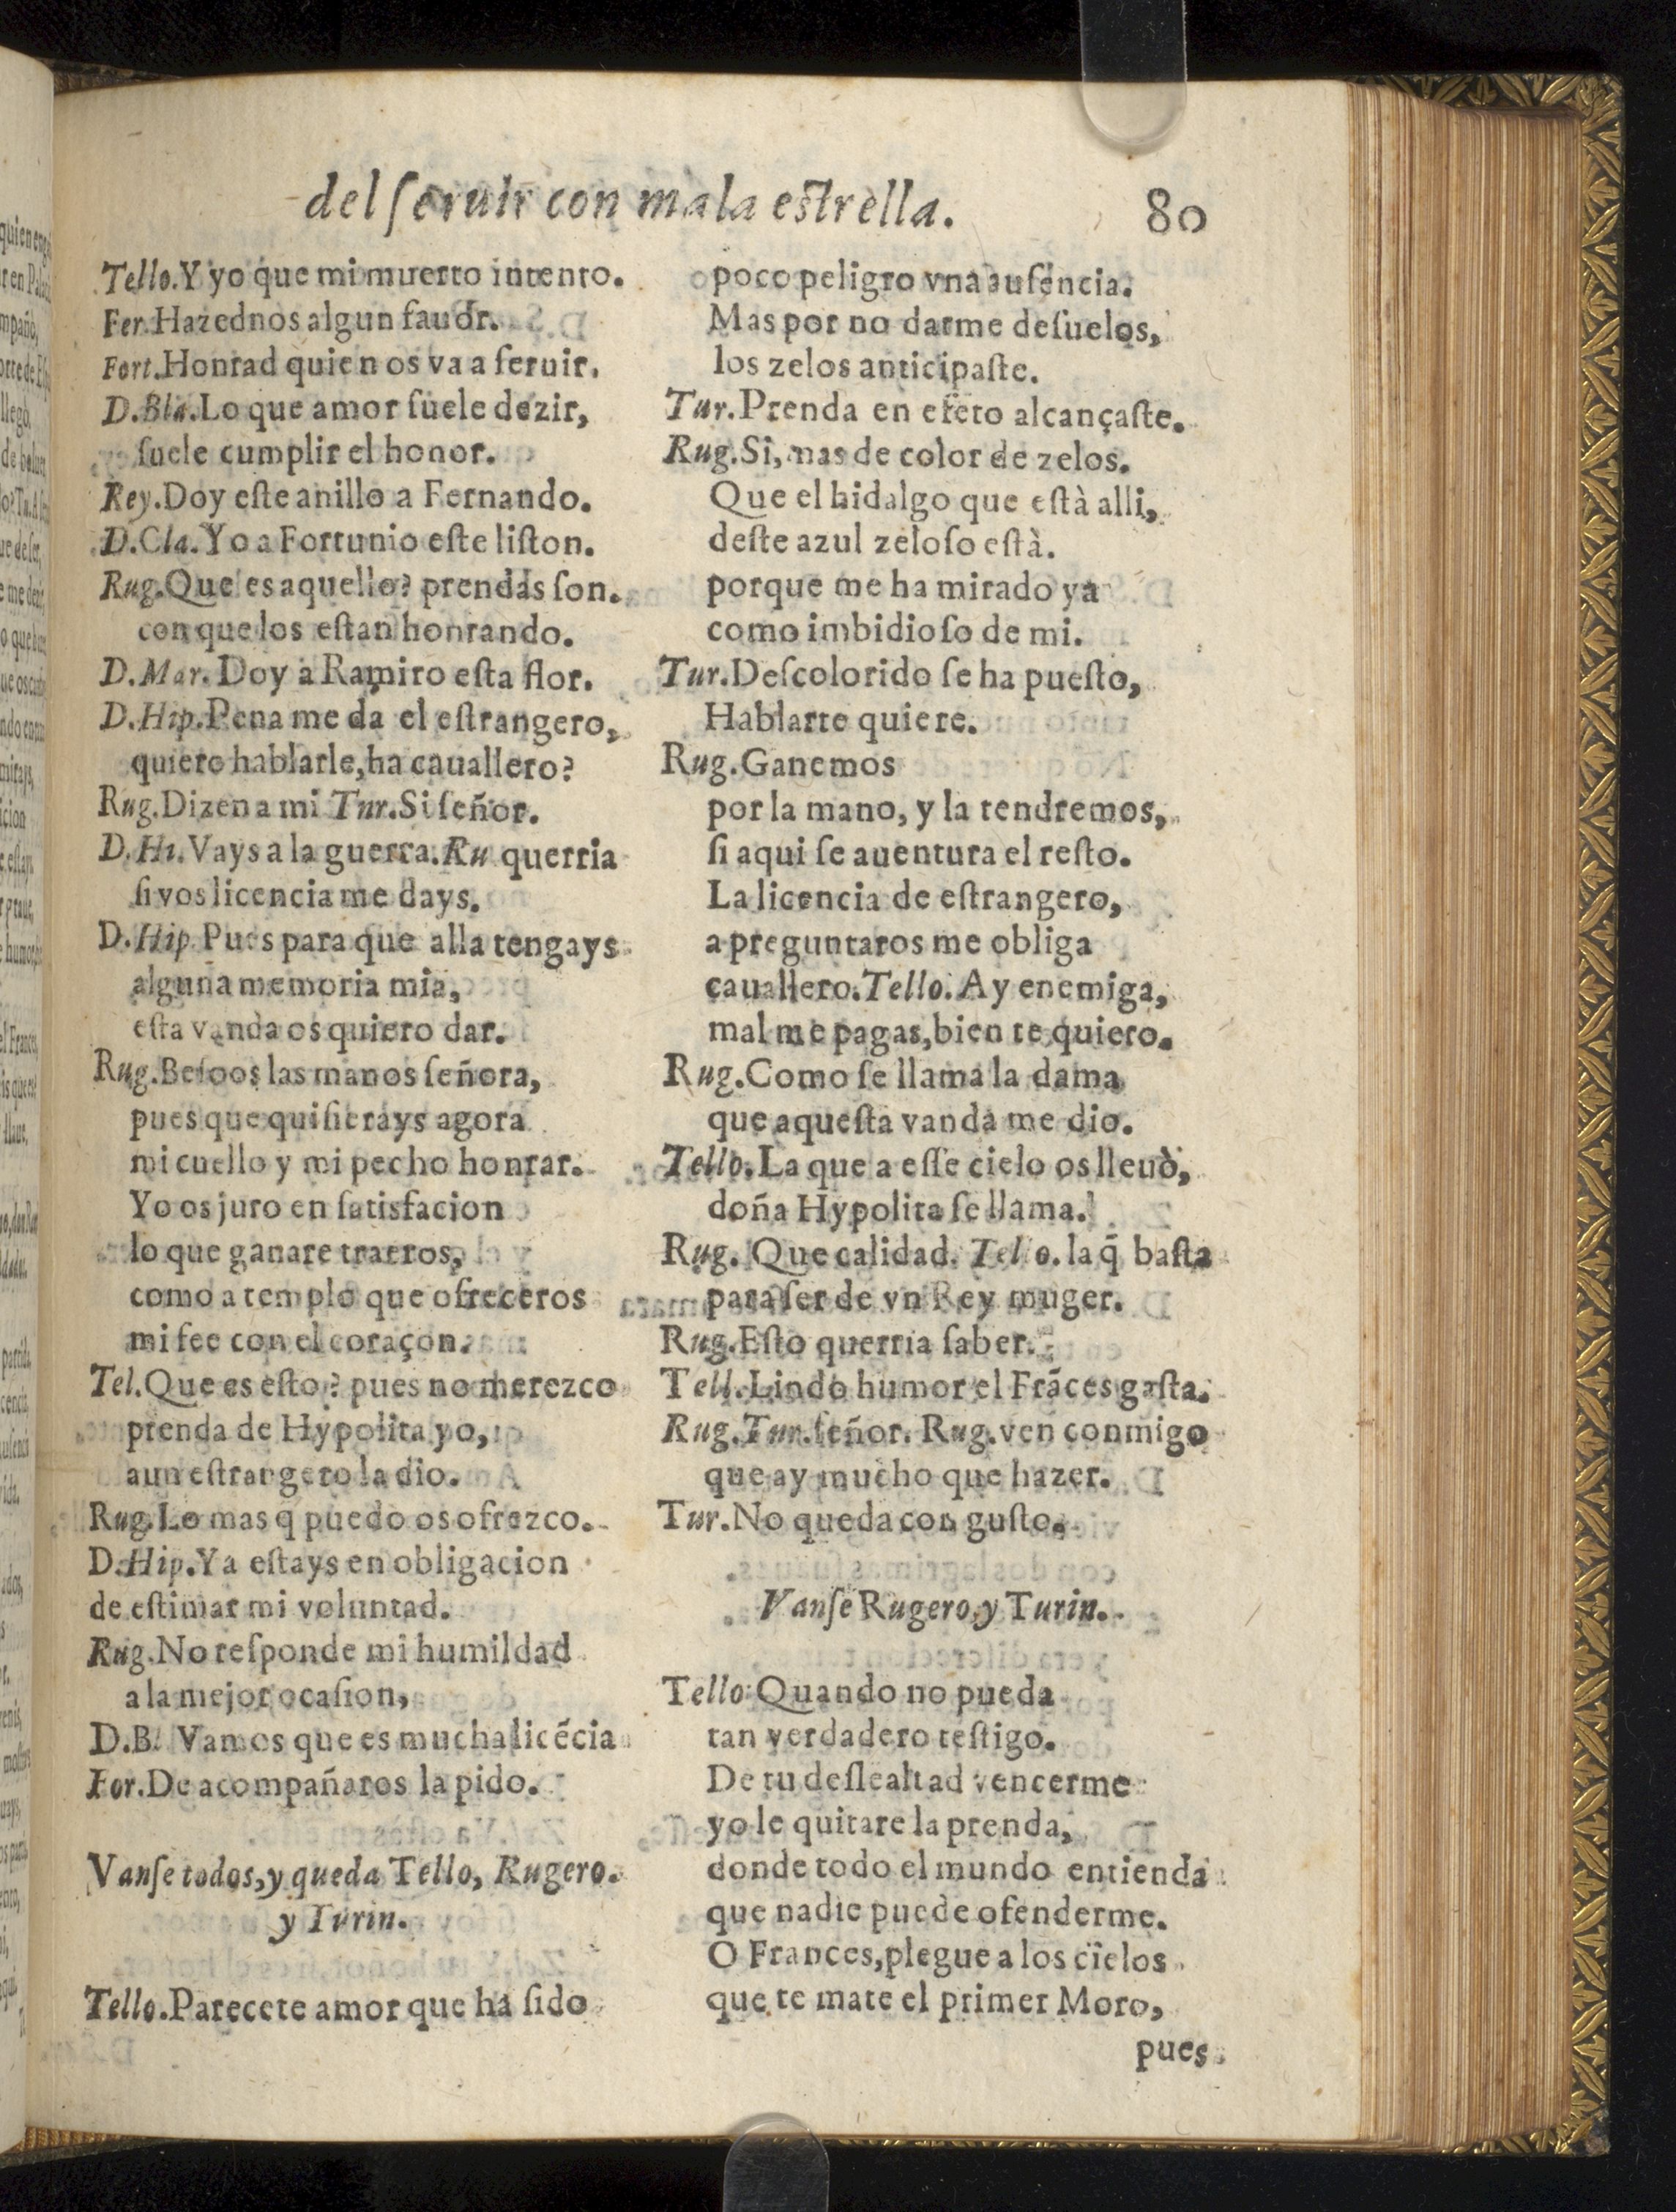 del ſeruir con mala eſtrella.
80
Tello.Y yo que mi muerto intento.
Fer.Hazednos algun fauor.
Fort.Honrad quien os va a ſeruir.
D.Bla.Lo que amor ſuele dezir,
ſuele cumplir el honor.
Rey.Doy eſte anillo a Fernando.
D.Cla.Yo a Fortunio eſte liſton.
Rug.Que es aquello? prendas ſon.
con que los eſtan honrando.
D.Mar.Doy a Ramiro eſta flor.
D.Hip.Pena me da el eſtrangero,
quiero hablarle,ha cauallero?
Rug.Dizen a mi Tur.Si ſeñor.
D.Hi.Vays a la guerra.Ru querria
ſi vos licencia me days.
D.Hip Pues para que alla tengays
alguna memoria mia,
eſta vanda os quiero dar.
Rug.Beſoos las manos ſeñora,
pues que quiſierays agora
mi cuello y mi pecho honrar.
Yo os juro en ſatisfacion
lo que ganare traeros,
como a templo que ofreceros
mi fee con el coraçon.
Tel.Que es eſto? pues no merezco
prenda de Hypolita yo,
a un eſtrangero la dio.
Rug.Lo mas q puedo os ofrezco.
D.Hip.Ya eſtays en obligacion
de eſtimar mi voluntad.
Rug.No reſponde mi humildad
a la mejor ocaſion,
D.Bl Vamos que es mucha licẽcia
For.De acompañaros la pido.
Vanſe todos,y queda Tello, Rugero.
y Turin.
Tello.Parecete amor que ha ſido
poco peligro vna auſencia.
Mas por no darme deſuelos,
los zelos anticipaſte.
Tur.Prenda en efeto alcançaſte.
Rug.Si, mas de color de zelos.
Que el hidalgo que eſtà alli,
deſte azul zeloſo eſtà.
porque me ha mirado ya
como imbidioſo de mi.
Tur.Deſcolorido ſe ha pueſto,
Hablarte quiere.
Rug.Ganemos
por la mano, y la tendremos,
ſi aqui ſe auentura el reſto.
La licencia de eſtrangero,
a preguntaros me obliga
cauallero.Tello.Ay enemiga,
mal me pagas,bien te quiero.
Rug.Como ſe llama la dama
que aqueſta vanda me dio.
Tello.La que a eſſe cielo os lleuò,
doña Hypolita ſe llama.
Rug. Que calidad. Tello.la q̃ baſta
para ſer de vn Rey muger.
Rug.Eſto querria ſaber.
Tell.Lindo humor el Frãces gaſta.
Rug.Tur.ſeñor. Rug.ven conmigo
que ay mucho que hazer.
Tur.No queda con guſto.
Vanſe Rugero,y Turin.
Tello Quando no pueda
tan verdadero teſtigo.
De tu deſlealtad vencerme
yo le quitare la prenda,
donde todo el mundo entienda
que nadie puede ofenderme.
O Frances,plegue a los cielos
que te mate el primer Moro,
pues